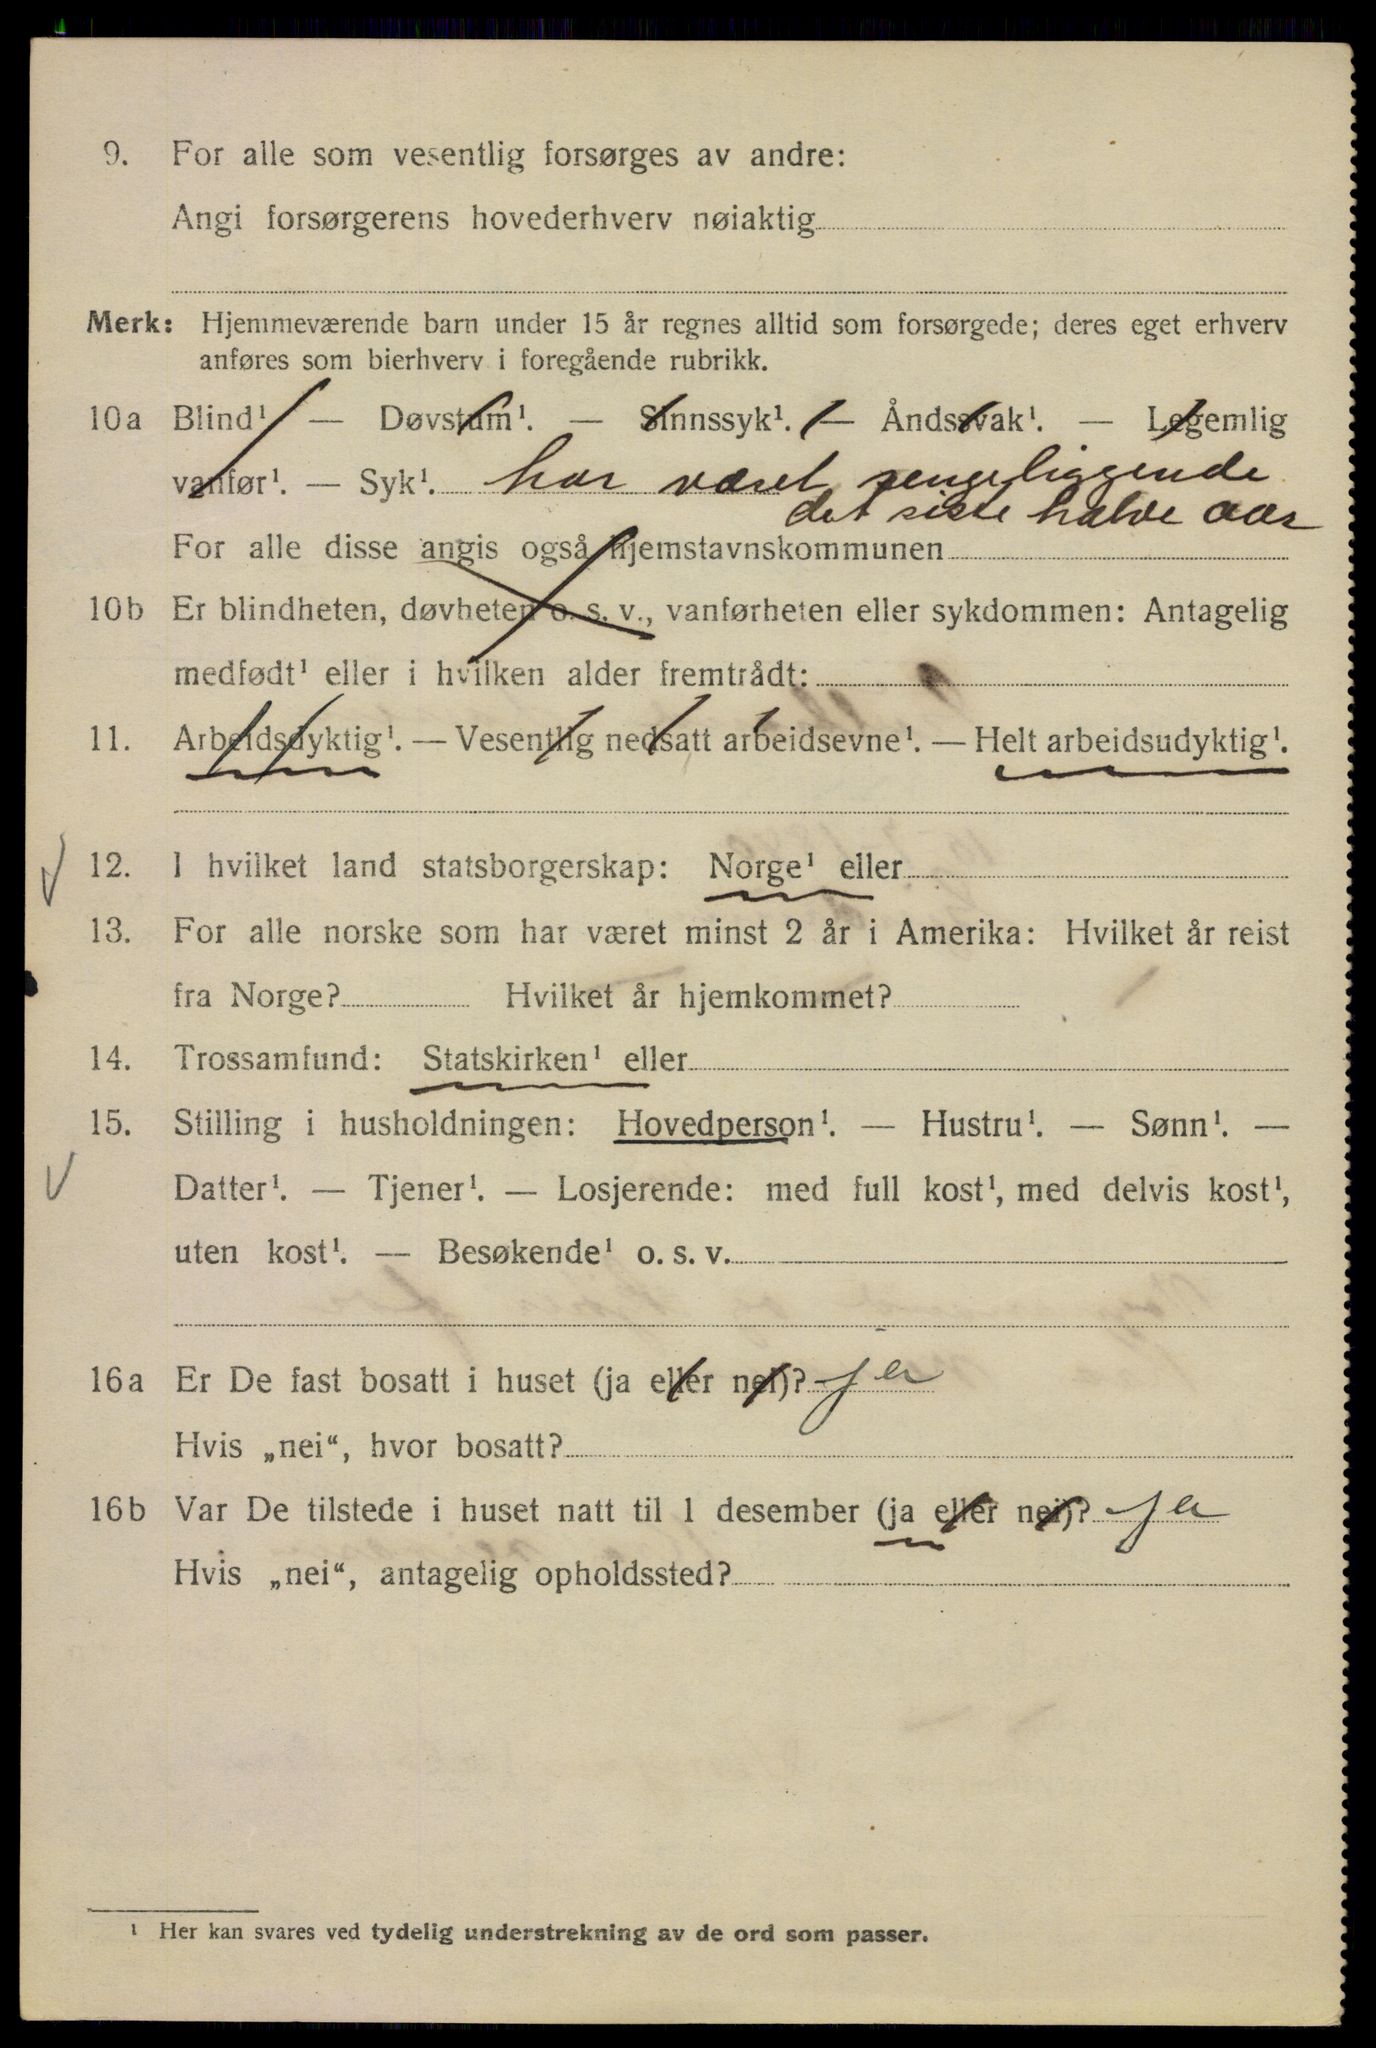 9. For alle som vesentlig forsørges av andre:
Angi forsørgerens hovederhverv nøiaktig
Merk: Hjemmeværende barn under 15 år regnes alltid som forsørgede; deres eget erhverv
anføres som bierhverv i foregående rubrikk.
10a Blind¹ — Døvstum¹. — Sinnssyk¹. — Åndssvak¹. — Legemlig
vanfør¹. — Syk¹. har været sengeliggende
det siste halve aar
For alle disse angis også hjemstavnskommunen
10b Er blindheten, døvheten o. s. v., vanførheten eller sykdommen: Antagelig
medfødt¹ eller i hvilken alder fremtrådt:
11. Arbeidsdyktig¹. — Vesentlig nedsatt arbeidsevne¹. — Helt arbeidsudyktig¹.
12. I hvilket land statsborgerskap: Norge¹ eller
13. For alle norske som har været minst 2 år i Amerika: Hvilket år reist
fra Norge? Hvilket år hjemkommet?
14. Trossamfund: Statskirken¹ eller
15. Stilling i husholdningen: Hovedperson¹. — Hustru¹. — Sønn¹. —
Datter¹. — Tjener¹. — Losjerende: med full kost¹, med delvis kost¹,
uten kost¹. — Besøkende¹ o. s. v.
16a Er De fast bosatt i huset (ja eller nei)? ja
Hvis „nei“, hvor bosatt?
16b Var De tilstede i huset natt til 1 desember (ja eller nei)? ja
Hvis „nei“, antagelig opholdssted?
¹ Her kan svares ved tydelig understrekning av de ord som passer.